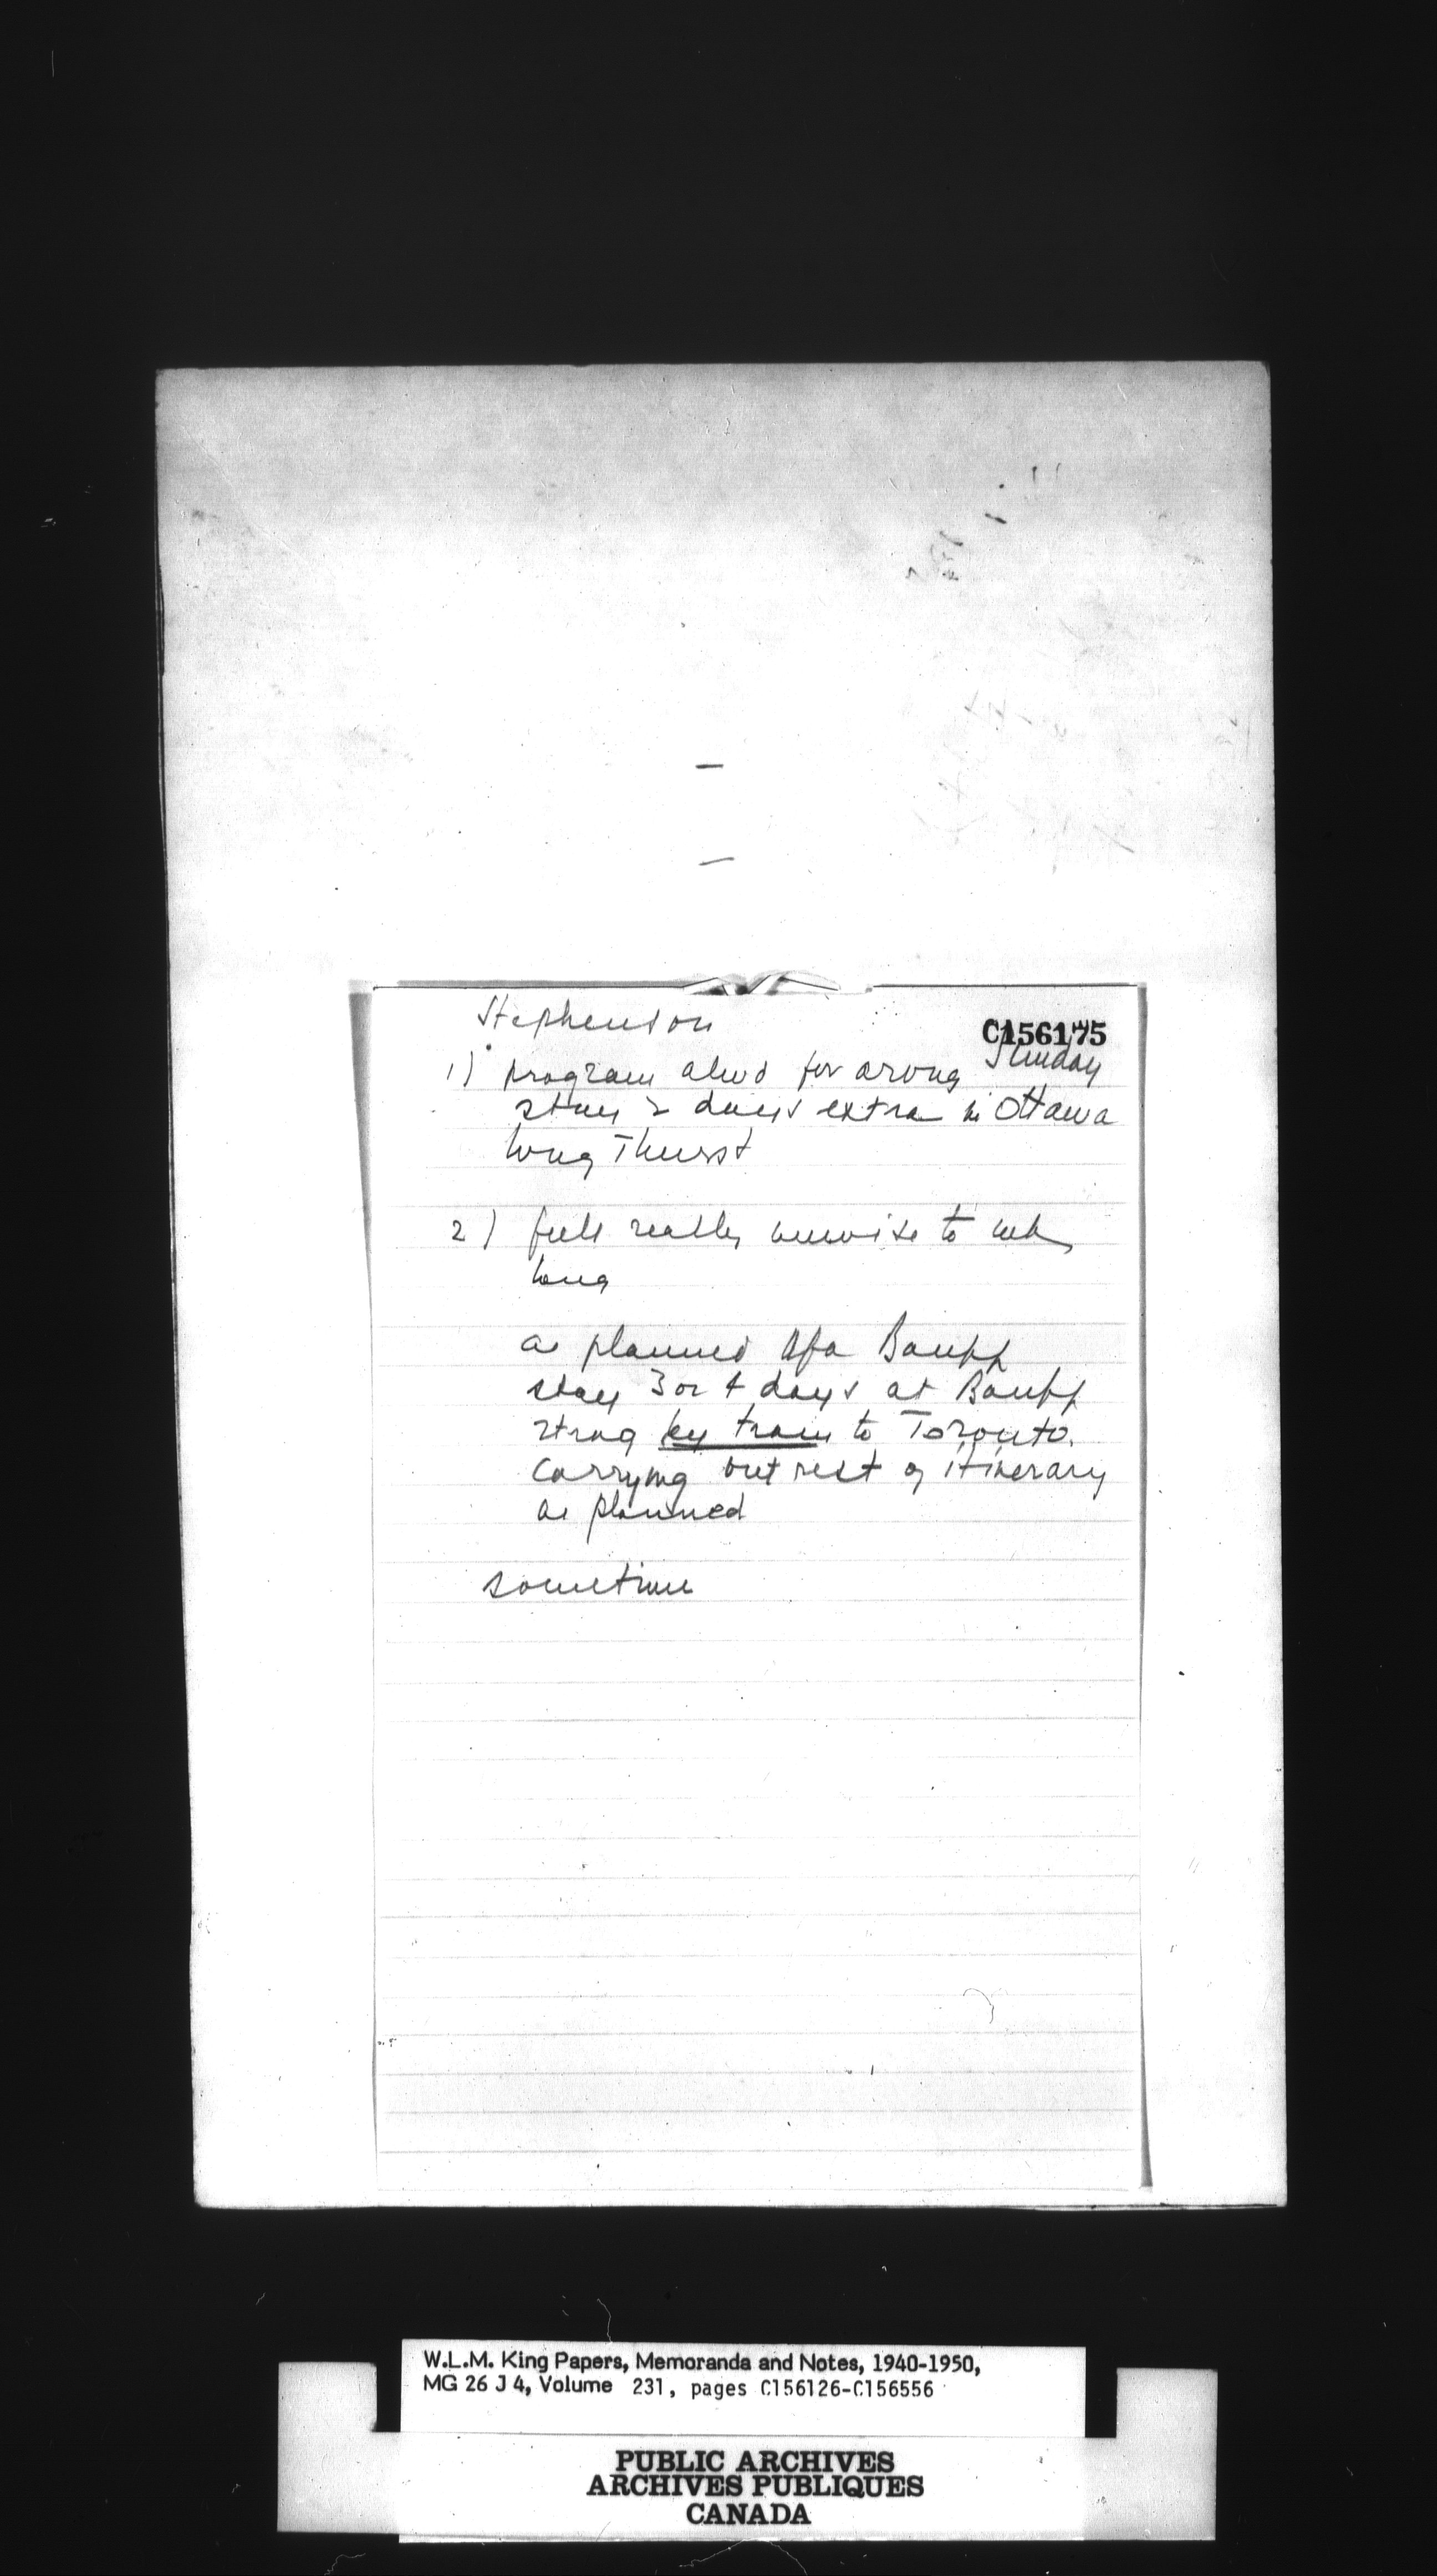 Stephenson
C156175
1) program alwd for arvng Sunday
stay 2 days extra in Ottawa
lvng Thurst
2) feels really unwise to
long
as planned Banff
stay 3 or 4 days at Banff
by train to Toronto.
carrying out rest of itinerary
as planned
sometime
W.L.M. King Papers, Memoranda and Notes, 1940-1950,
MG 26 J 4, Volume 231, pages C156126-C156556
PUBLIC ARCHIVES
ARCHIVES PUBLIQUES
CANADA